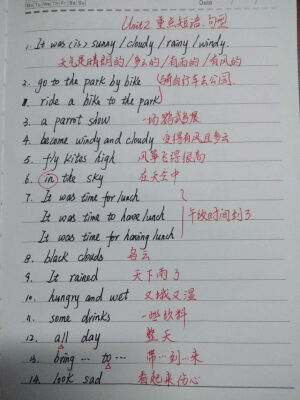 Mo Tu We Th Fr Sa Su
Date
Unit2 重点短语、句型
1. It was (is) sunny / cloudy / rainy / windy.
天气是晴朗的 / 多云的 / 有雨的 / 有风的
2. go to the park by bike 骑自行车去公园
ride a bike to the park
3. a parrot show 一场鹦鹉展
4. become windy and cloudy 变得有风且多云
5. fly kites high 风筝飞得很高
6. in the sky 在天空中
7. It was time for lunch
It was time to have lunch 午饭时间到了
It was time for having lunch
8. black clouds 乌云
9. It rained 天下雨了
10. hungry and wet 又饿又湿
11. some drinks 一些饮料
12. all day 整天
13. bring … to … 带…到…来
14. look sad 看起来伤心